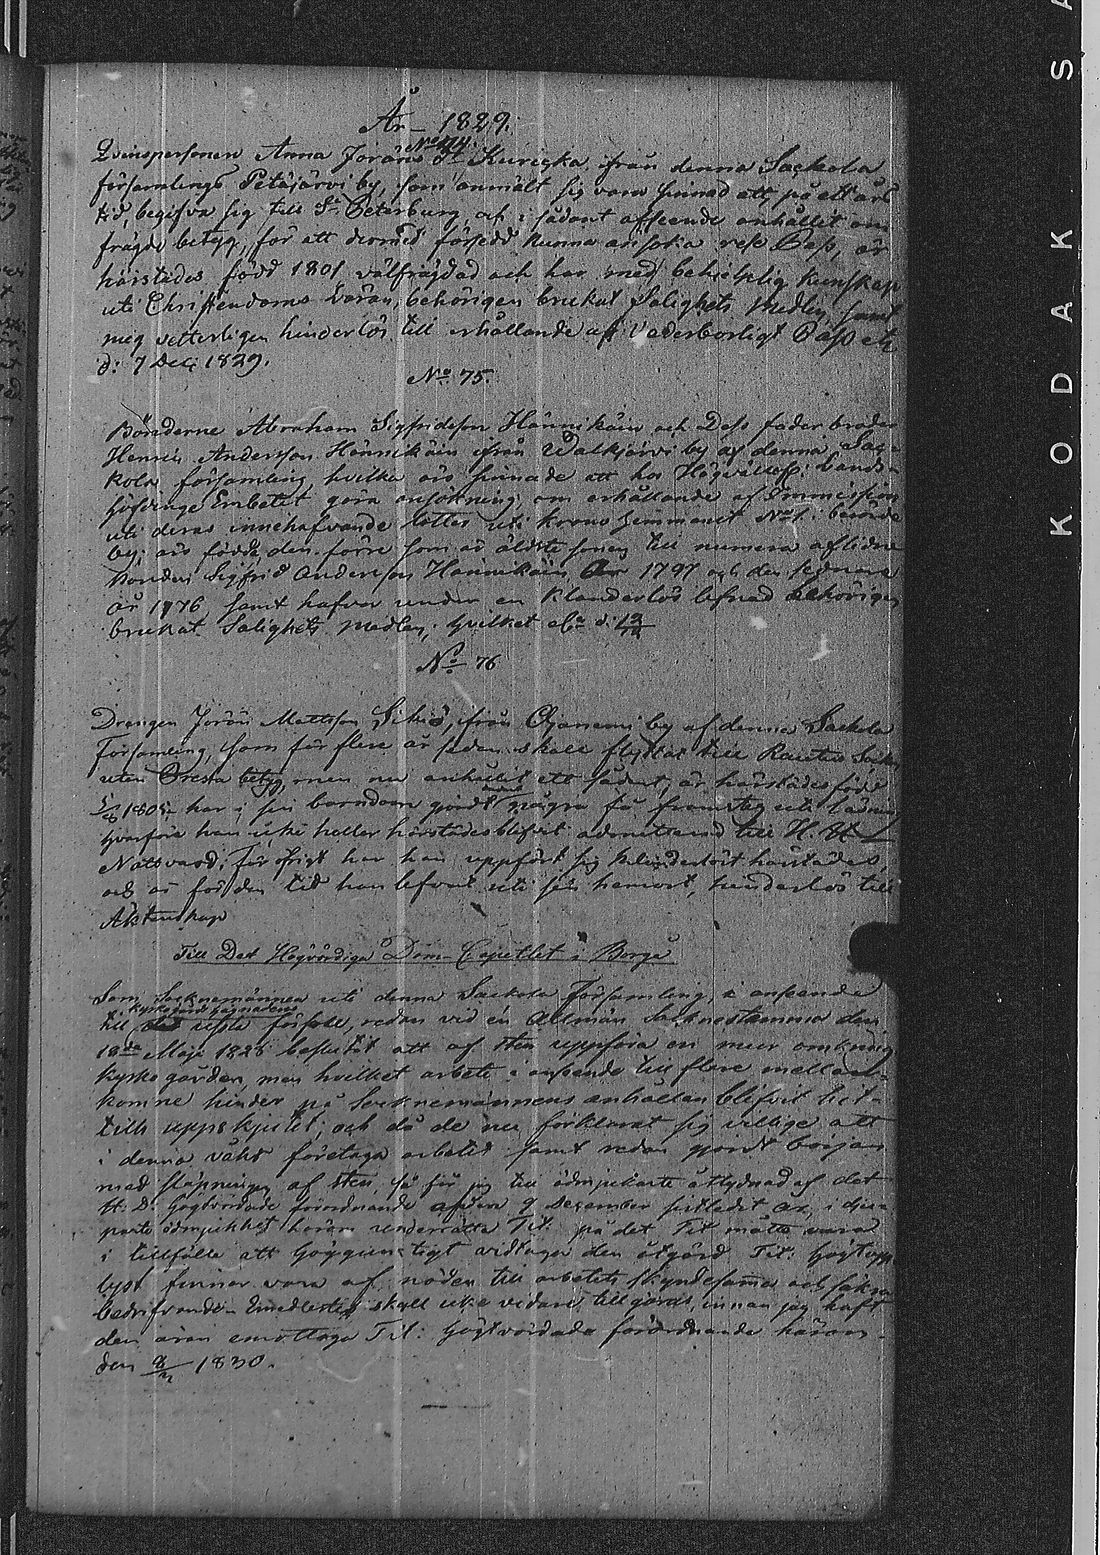 År 1829.
No 74.
Qvinspersonen Anna Jöransdr Kuricka från denna Sackola
församlings Petäjärvi by, som anmält sig vara sinnad att på ett års
tid begifva sig till St Peterburg, och i sådant afseende anhållit om
frägde betyg, för att dermed försedd kunna ansöka rese Pass, är
härstädes född 1801 välfräjdad och har med behjelplig kunskap
uti Christendoms Läran, behörigen brukat Salighets Medlen, samt
mig vetterligen hinderlös till erhållande af Vederborligt Pass etc
d: 7 Dec: 1829.
No 75.
Bönderne Abraham Sigfridsson Hännikäin och Dess fader broder
Henric Andersson Hännikäin från Walkjärvi by af denna Sac-
kola församling, hvilka äro sinnade att hos Högvällofl: Lands-
höfdinge Embetet göra ansökning om erhållande af Immission
uti deras innehafvande lotter uti krono hemmanet No 1. i berörde
by; äro födde den förre som är äldste sonen till numera aflidne
bonden Sigfrid Andersson Hännikäin År 1797 och den sednare
år 1776 samt hafver under en klanderlös lefnad behörigen
brukat Salighets Medlen; hvilket
No 76
Drengen Jöran Mattsson från by af denna Sackola
Församling, som för flere år sedan skall flyttat till Rautus Sockn
utan Orts betyg, men nu anhållit ett sådant, är härstädes född
1805 har i sin barndom gjordt några få framsteg uti läsning
hvarföre han icke heller härstädes blifvit admitterad till H. H.
Nattvard; för öfrigt har han uppfört sig klanderlöst härstädes
och är för den tid han lefvat uti sin hemort, hinderlös till
Äktenskap
Till Det Högvördiga Dom-Capitlet i Borgå
Som Socknemännen uti denna Sackola Församling, i anseende
kyrkogårds hägnadens
till förfall, redan vid en Allmän Socknestämma den
18de Maji 1828 beslutit att af sten uppföra en mur omkring
kyrko gården, men hvilket arbete i anseende till flere emellan-
komne hinder på Socknemännens anhållan blifvit hit-
tills uppskjutet; och då de nu förklarat sig villige att
i denna företaga arbetet samt redan gjordt början
med släpning af sten, så får jag till ödmjukaste åtlydnad af det
H. D: Högtvördade förordnande af den 9 December sistledit år, i dju-
paste ödmjukhet härom underrätta Tit: på det Tit måtte vara
i tillfälle att höggunstigt vidtaga den åtgärd Tit: högtupp
lyst finner vara af nöden till arbetets skyndesamma och säkra
bedrifvande. Emedlertid skall icke vidare tillgöras, innan jag haft
den äran emottaga Tit: högtvördade förordnande härom.
den 1830.
KODAK SA